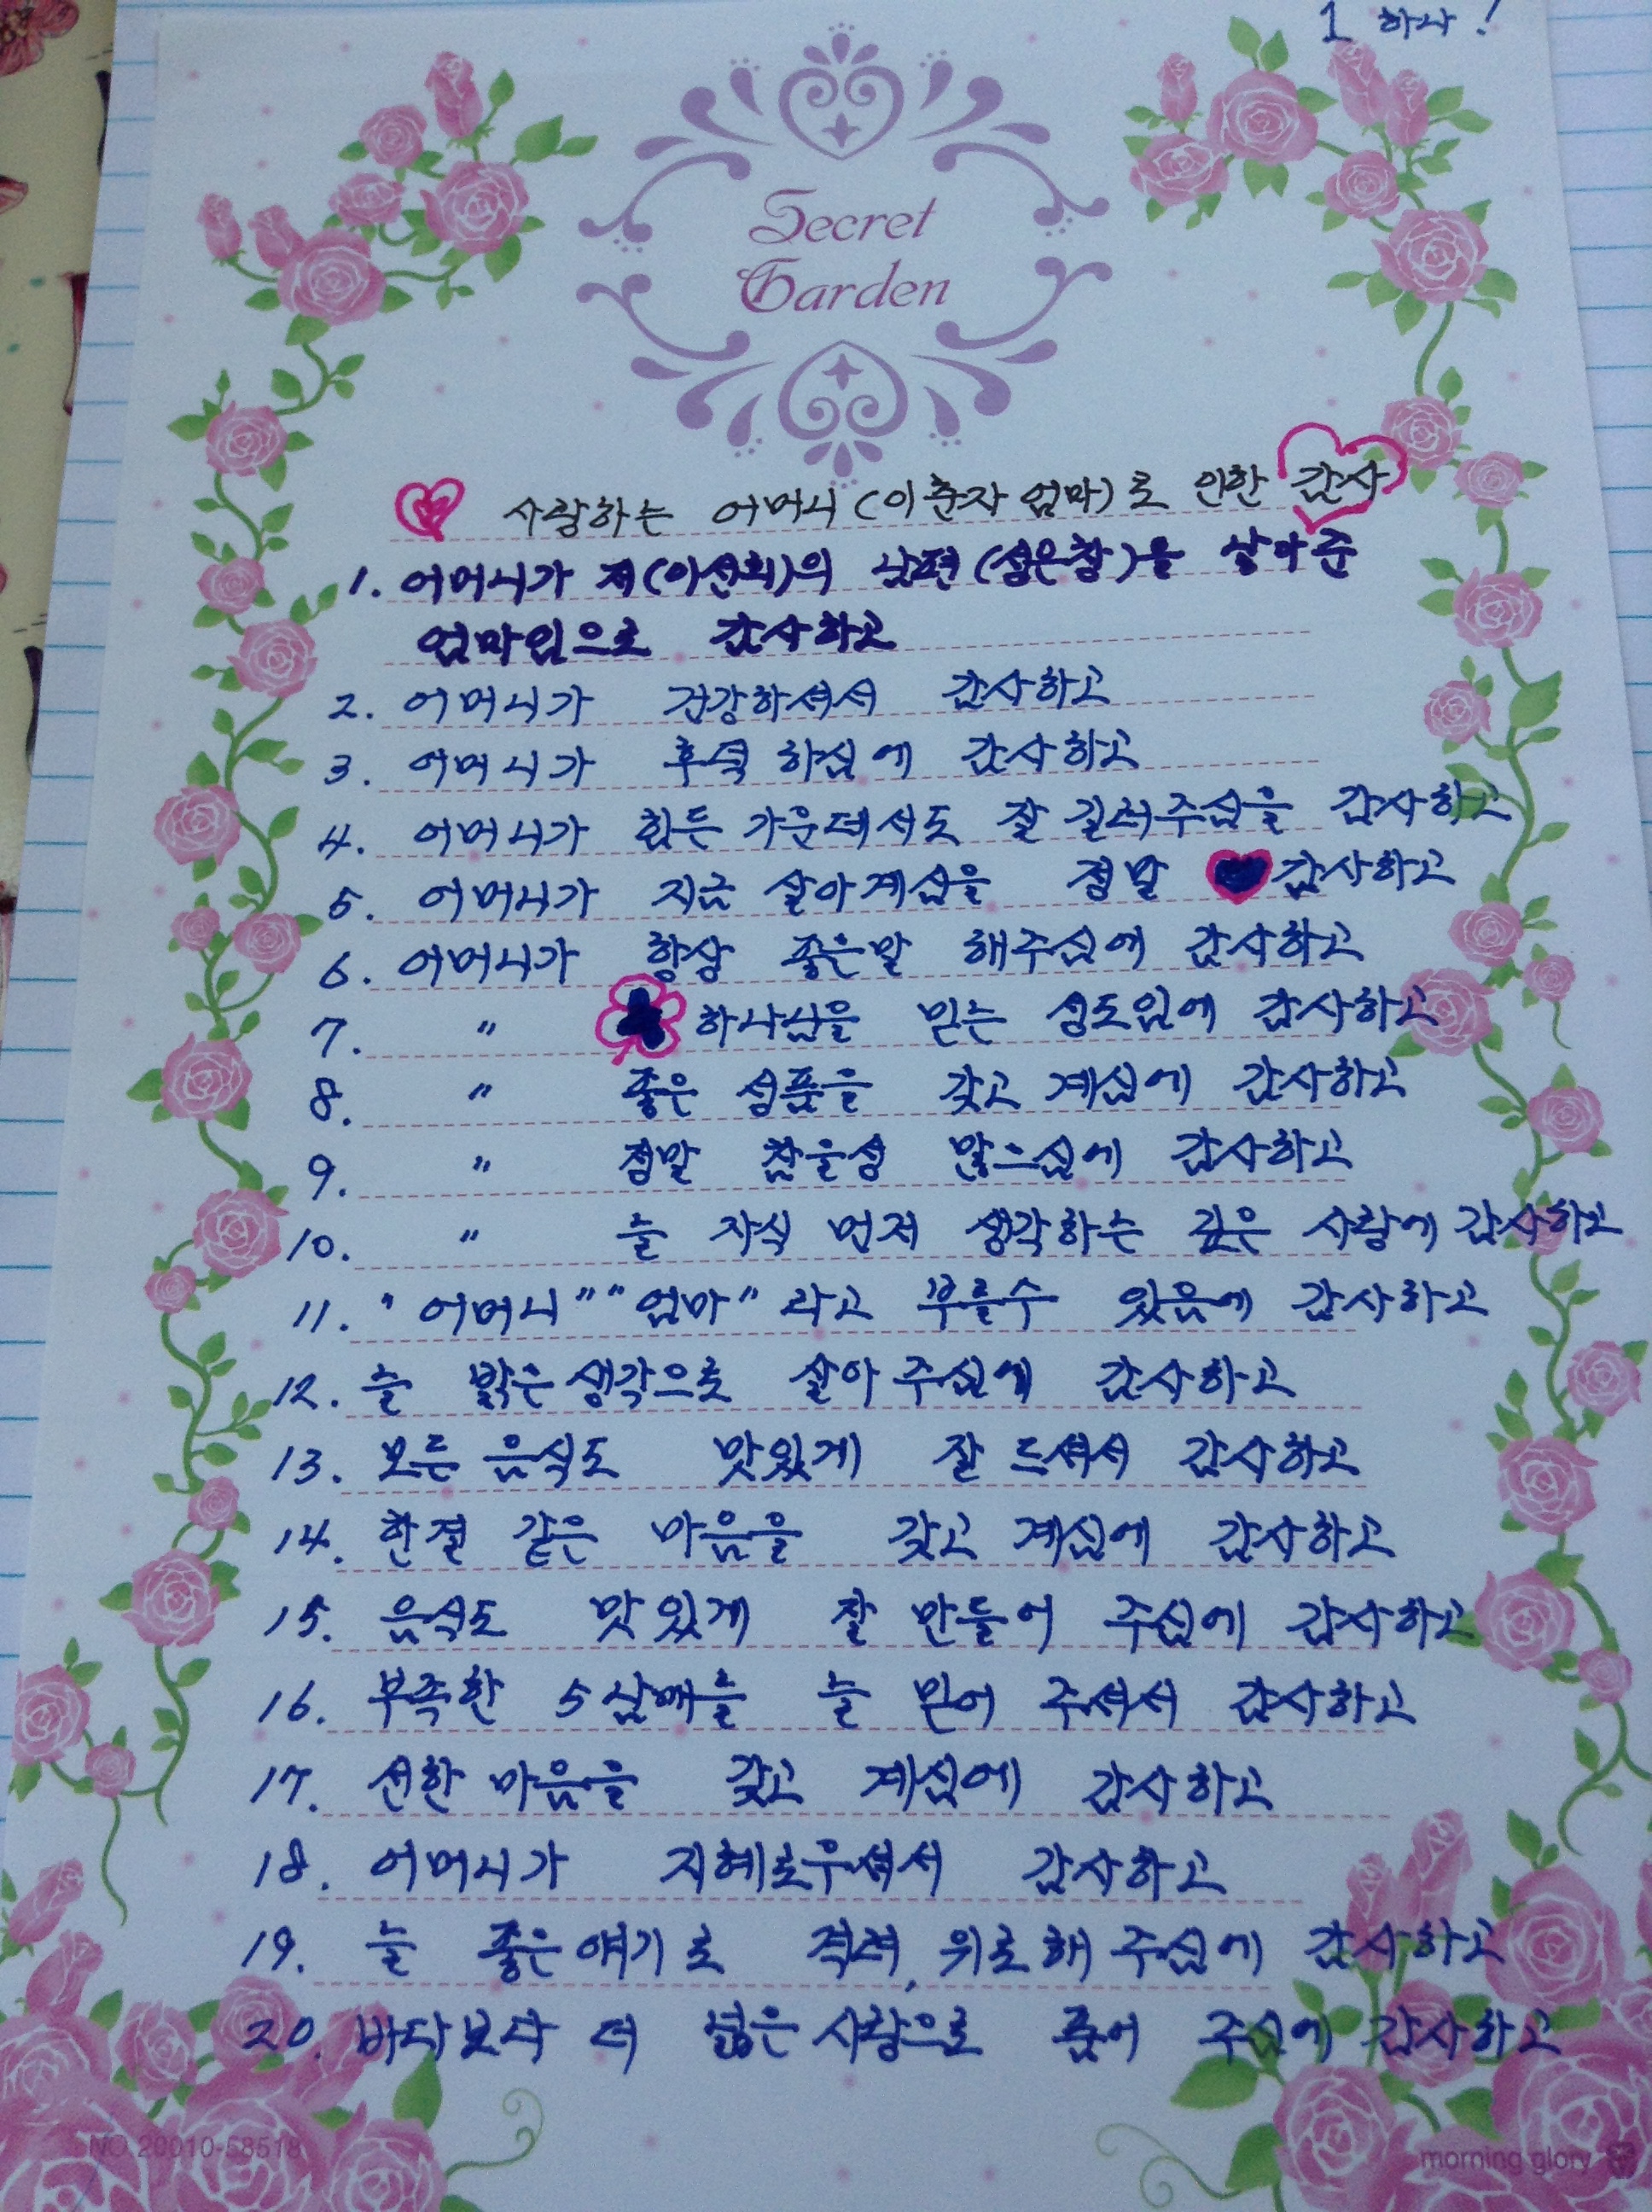 1 하나!
Secret
Garden
사랑하는 어머니(이춘자 엄마)로 인한 감사
1. 어머니가 저(이선희)의 남편(성은창)을 낳아준
엄마임으로 감사하고
2. 어머니가 건강하셔서 감사하고
3. 어머니가 후덕 하심에 감사하고
4. 어머니가 힘든 가운데서도 잘 길러주심을 감사하고
5. 어머니가 지금 살아계심을 정말 감사하고
6. 어머니가 항상 좋은말 해주심에 감사하고
7. " 하나님을 믿는 성도임에 감사하고
8. " 좋은 성품을 갖고 계심에 감사하고
9. " 정말 참을성 많으심에 감사하고
10. " 늘 자식 먼저 생각하는 깊은 사랑에 감사하고
11. "어머니" "엄마" 라고 부를수 있음에 감사하고
12. 늘 밝은 생각으로 살아 주심에 감사하고
13. 모든 음식도 맛있게 잘 드셔서 감사하고
14. 한결 같은 마음을 갖고 계심에 감사하고
15. 음식도 맛있게 잘 만들어 주심에 감사하고
16. 부족한 5남매를 늘 믿어 주셔서 감사하고
17. 선한 마음을 갖고 계심에 감사하고
18. 어머니가 지혜로우셔서 감사하고
19. 늘 좋은 얘기로 격려, 위로해 주심에 감사하고
20. 바다보다 더 넓은 사랑으로 품어 주심에 감사하고
NO.20010-58518
morning glory